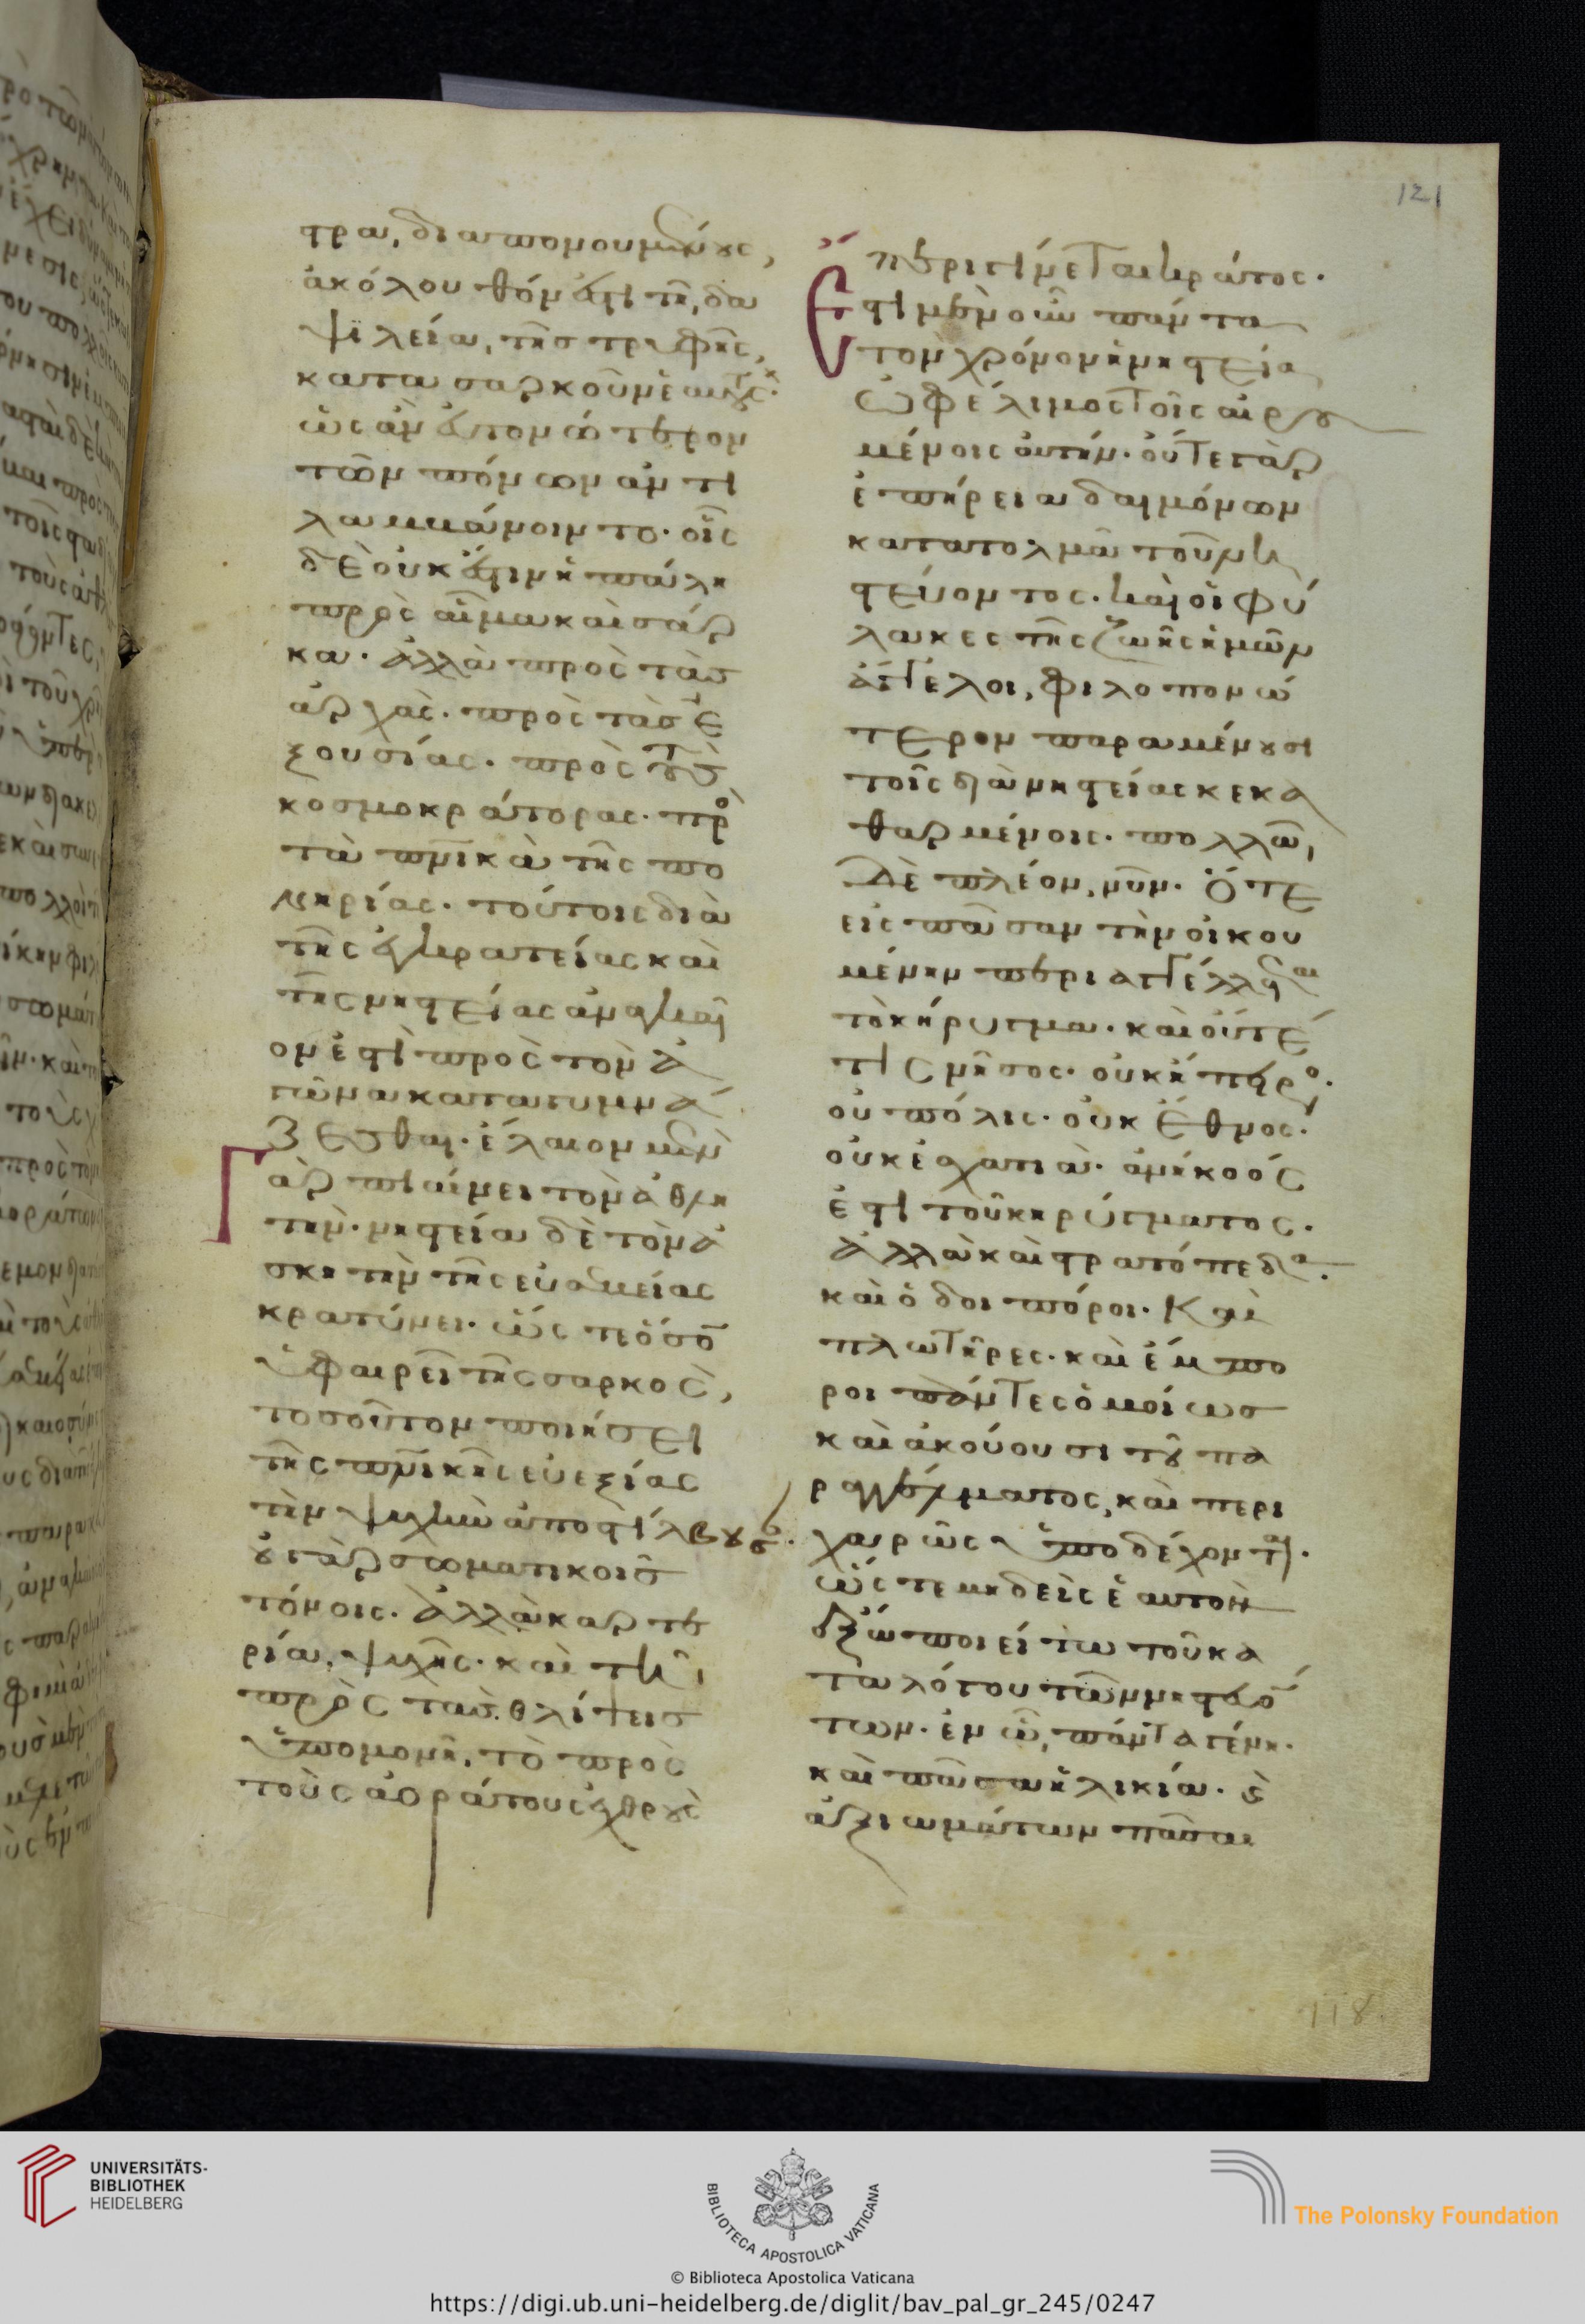 στρα, διαπονουμένους,
ἀκόλουθόν ἐστι τῇ δα
ψιλεία, τῆς τρυφῆς,
κατασαρκοῦν ἑαυτούς·
ὡς ἂν ἐντονώτερον
τῶν πόνων ἀντι
λαμβάνοιντο. οἷς
δὲ οὐκ ἔστιν ἡ πάλη
πρὸς αἷμα καὶ σάρ
κα. ἀλλὰ πρὸς τὰς
ἀρχὰς. πρὸς τὰς ἐ
ξουσίας. πρὸς τοὺς
κοσμοκράτορας. πρὸ
τὰ πνικὰ τῆς πο
νηρίας. τούτοις διὰ
τῆς ἐγκρατείας καὶ
τῆς νηστείας ἀναγκαῖ
ον ἐστὶ πρὸς τὸν ἀ
γῶνα καταγυμνά
ζεσθαι. ἔλαιον μὲν
γὰρ πιαίνει τὸν ἀθλη
τὴν. νηστεία δὲ τὸν ἀ
σκητὴν τῆς εὐσεβείας
κρατύνει. ὥς τε ὅσο̄
ὑφαιρεῖ τῆς σαρκὸς,
τοσοῦτον ποιήσει
τῆς πνικῆς εὐεξίας
τὴν ψυχὴν ἀποστίλβουσα.
οὐ γὰρ σωματικοῖς
τόνοις. ἀλλὰ καρτε
ρία, ψυχῆς. καὶ τῆ,
πρὸς τὰς θλίψεις
ὑπομονῆ, τὸ πρὸς
τοὺς ἀοράτους ἐχθροὺς
περιγίνεται κράτος.
Ἔστι μὲν οὖν πάντα
τον χρόνον ἡ νηστεία
ὠφέλιμος τοῖς αἱρου
μένοις αὐτήν. οὔτε γὰρ
ἐπήρεια δαιμόνων
κατατολμᾶ τοῦ νη
στεύοντος. καὶ οἱ φύ
λακες τῆς ζωῆς ἡμῶν
ἄγγελοι, φιλοπονώ
τερον παραμένουσι
τοῖς διὰ νηστείας κεκα
θαρμένοις. πολλῶ,
δὲ πλέον, νῦν. ὅτε
εἰς πᾶσαν τὴν οἰκου
μένην περιαγγέλλεται
τὸ κήρυγμα. καὶ οὔτέ
τις νῆσος. οὐκ ἤπειρο.
οὐ πόλις. οὐκ ἔθνος.
οὐκ ἐσχατιὰ. ἀνήκοός
ἐστι τοῦ κηρύγματος.
ἀλλὰ καὶ στρατόπεδα.
καὶ ὁδοιπόροι. καὶ
πλωτῆρες. καὶ ἔμπο
ροι πάντες ὁμοίως
καὶ ἀκούουσι τοῦ πα
ραγγέλματος, καὶ περι
χαρῶς ὑποδέχονται.
ὥς τε μηδεὶς ἑαυτὸν
ἔξω ποιείτω τοῦ κα
ταλόγου τῶν νηστευό
των. ἐν ῶ, πάντα γένη.
καὶ πᾶσα ἡλικία. καὶ
ἀξιωμάτων πᾶσαι
121
118
UNIVERSITÄTS-
BIBLIOTHEK
HEIDELBERG
BIBLIOTECA APOSTOLICA VATICANA
The Polonsky Foundation
© Biblioteca Apostolica Vaticana
https://digi.ub.uni-heidelberg.de/diglit/bav_pal_gr_245/0247